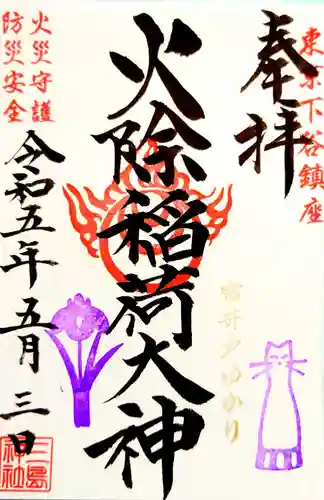 奉拝
東京下谷鎮座
火除稲荷大神
火災守護
防災安全
令和五年五月三日
三島神社
雷井戸ゆかり